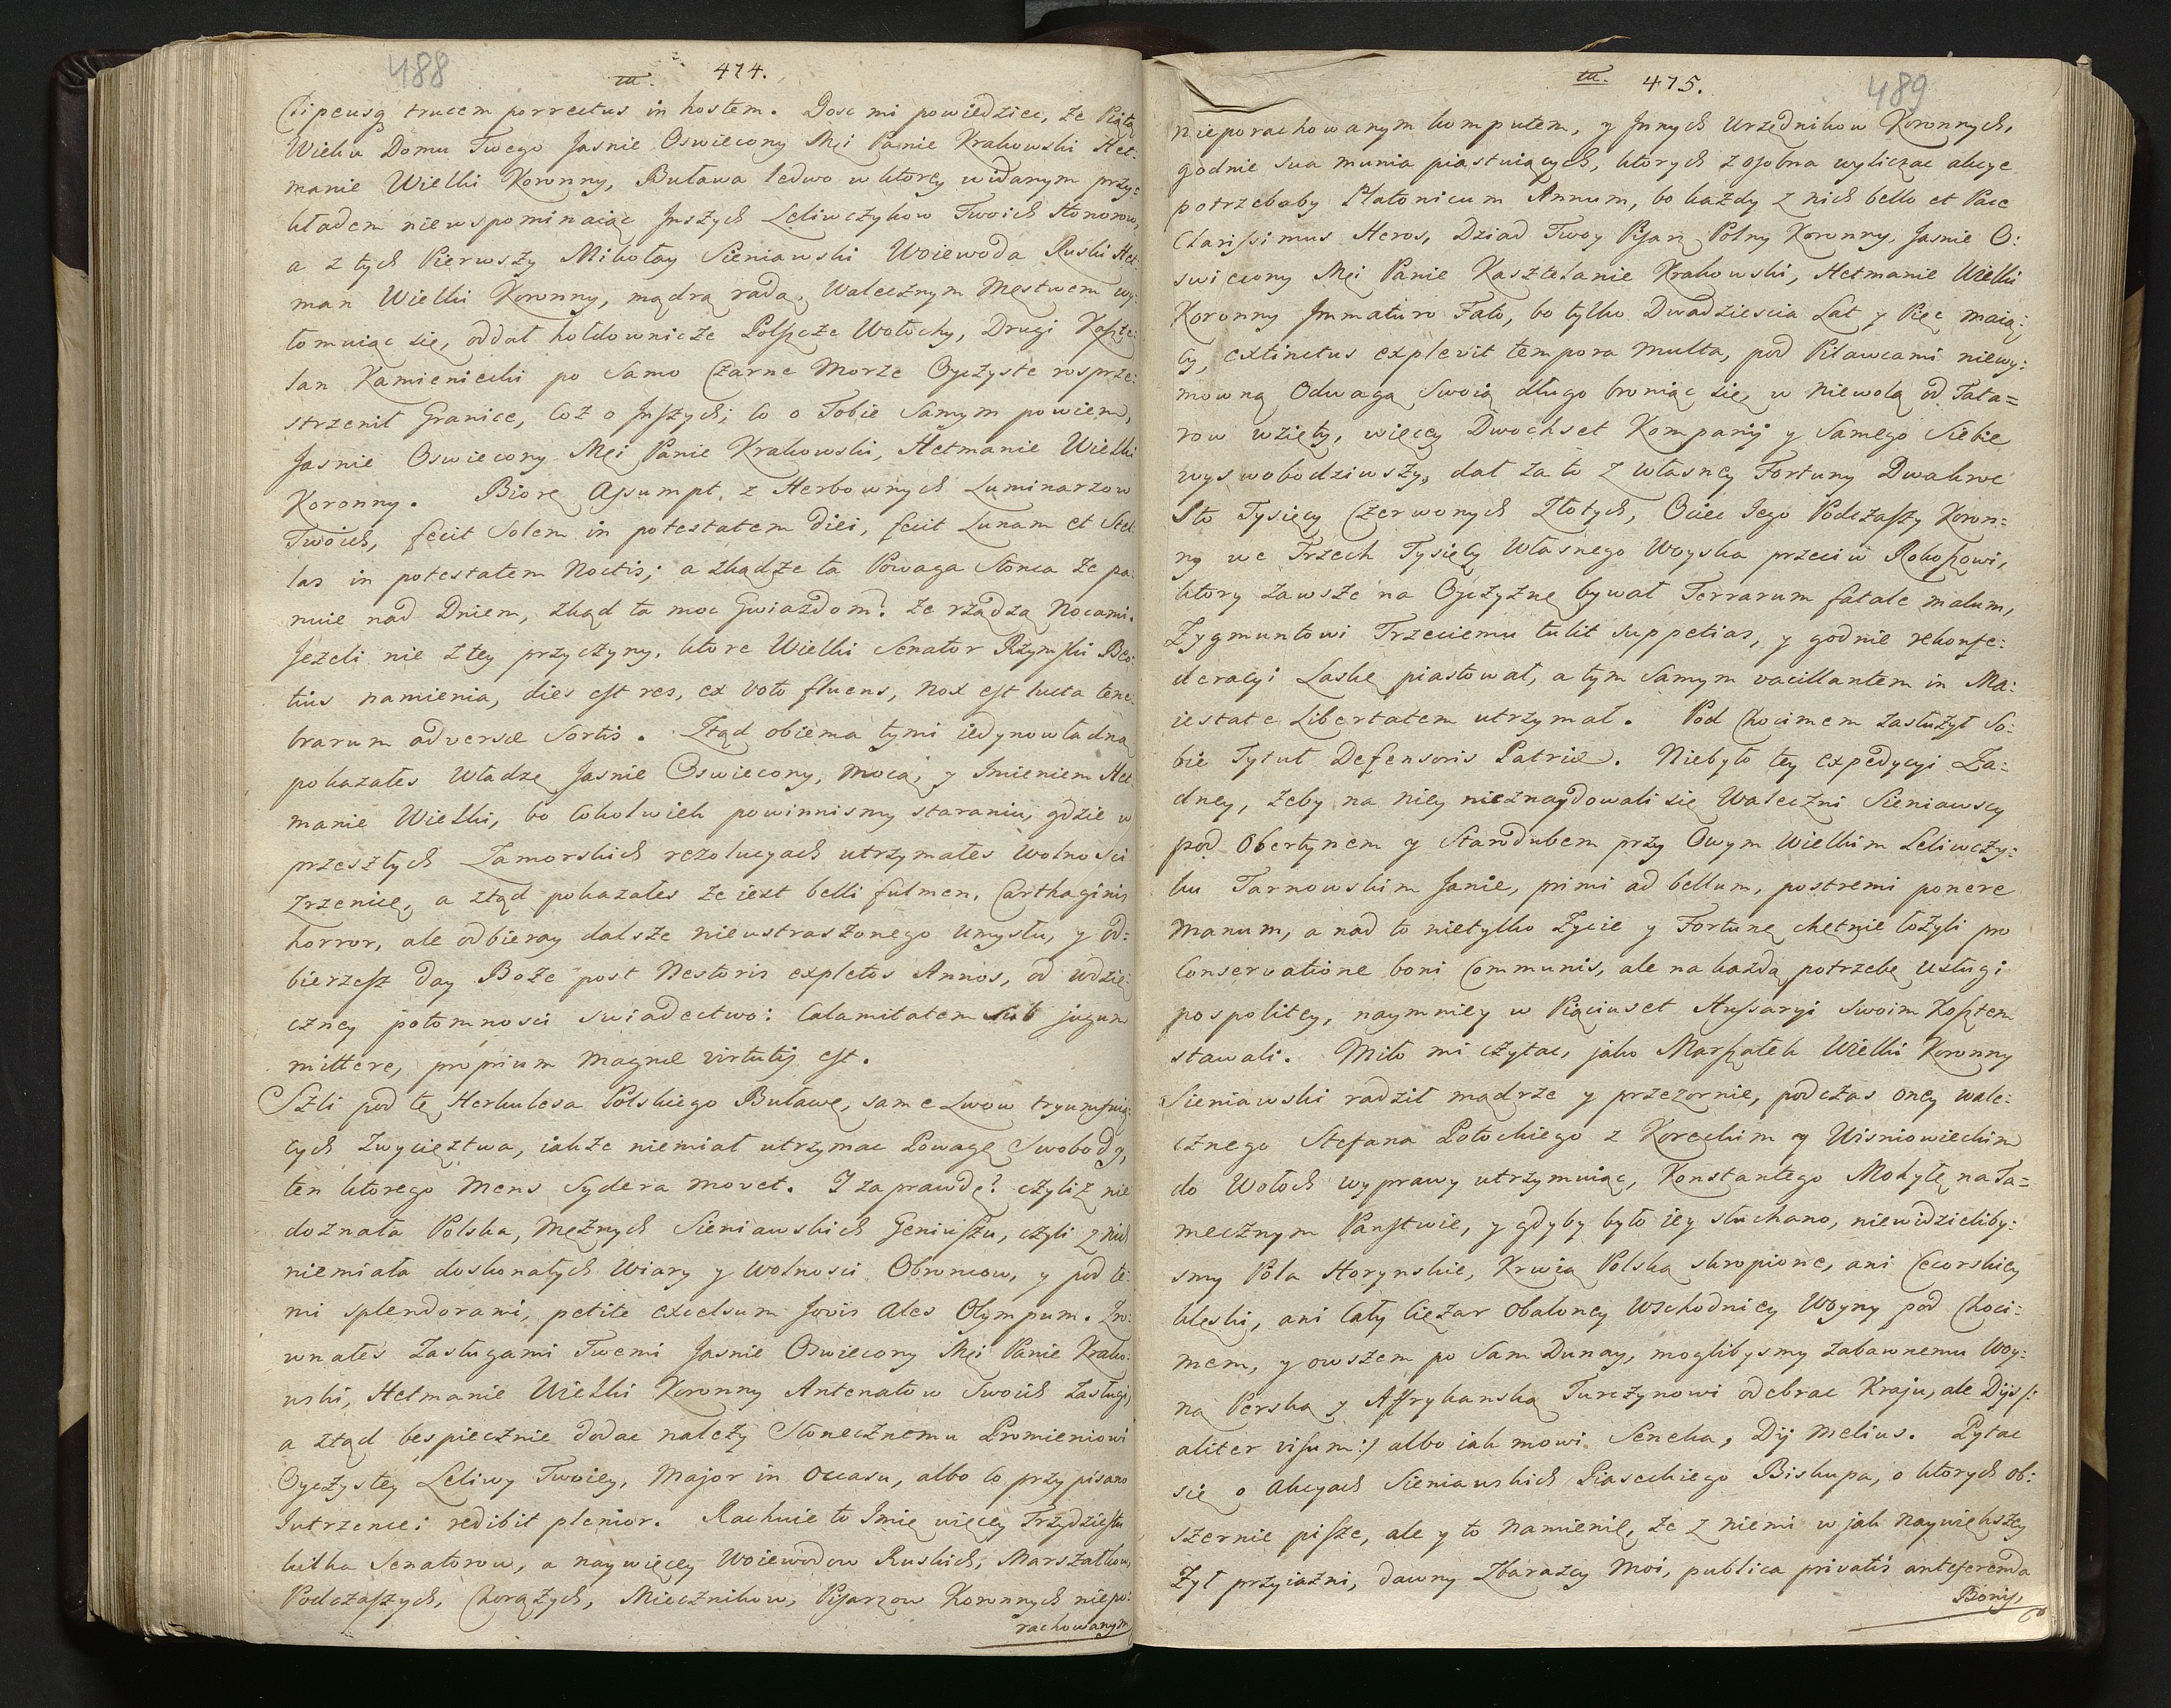 488
m. 474.
Clipeusq trucem porrectus in hostem. Dosc mi powiedziec, że Piąta
Wieku Domu Twego Jasnie Oswiecony Mci Panie Krakowski Het:
manie Wielki Koronny, Buława ledwo w ktorey widanym przy:
kładem niewspominaiąc Jnszych Leliwczykow Twoich Honorow,
a z tych Pierwszy Mikołay Sieniawski Woiewoda Ruski Het:
man Wielki Koronny, mądrą radą, Walecznym Męstwem wy:
łomuiąc się, oddał hołdownicze Polszcze Wołochy, Drugi Kaszte:
lan Kamieniecki po Samo Czarne Morze Oyczyste rosprze:
strzenił Granice, coż o Jnszych; co o Tobie Samym powiem,
Jasnie Oswiecony Mci Panie Krakowski, Hetmanie Wielki
Koronny. Biorę Assumpt, z Herbownych Luminarzow
Twoich, fecit Solem in potestatem Diei, fecit Lunam et Stel:
las in potestatem Noctis; a zkądże ta Powaga Słonca że pa:
nuie nad Dniem, zkąd ta moc Gwiazdom? że rządzą Nocami.
Jeżeli nie z tey przyczyny, ktore Wielki Senator Rzymski Boe:
tius namienia, dies est res, ex voto fluens, nox est lucta tene:
brarum adversæ Sortis. Ztąd obiema tymi iedynowładną
pokazałes Władzę Jasnie Oswiecony, mocą, y Jmieniem Het
manie Wielki, bo cokolwiek powinnismy staraniu, gdzie w
przeszłych Zamorskich rezolucyach utrzymałes Wolnosci
Zrzenicę, a ztąd pokazałes że iest belli fulmen, Carthaginis
horror, ale odbieray dalsze nieustraszonego umysłu, y od:
bierzesz day Boże post Nestoris expletos Annos, od wdzię:
czney potomnosci swiadectwo: Calamitatem sub jugum
mittere, proprium magnæ virtutis est.
Szli pod tę Herkulesa Polskiego Buławę, same Lwow tryumfuią:
cych Zwycięztwa, iakże niemiał utrzymac Powagę Swobody,
ten ktorego Mens Sydera movet. I zaprawdę? czyliż nie
doznała Polska, Mężnych Sieniawskich Geniuszu, czyli z nich
niemiała doskonałych Wiary y Wolnosci Obroncow, y pod te:
mi splendorami, petite excelsum Jovis Ales Olympum. Zro:
wnałes Zasługami Twemi Jasnie Oswiecony Mci Panie Krako:
wski, Hetmanie Wielki Koronny Antenatow Twoich Zasługi,
a ztąd bespiecznie dodac należy Słonecznemu Promieniowi
Oyczystey Leliwy Twoiey, Major in occasu, albo co przypisano
Jutrzence: redibit plenior. Rachuie to Jmię więcey Trzydziestu
kilka Senatorow, a naywięcey Woiewodow Ruskich, Marszałkow,
Podczaszych, Chorążych, Miecznikow, Pisarzow Koronnych niepo:
rachowanym
m. 475.
489
nieporachowanym komputem, y Jnnych Urzędnikow Koronnych,
godnie sua munia piastuiących, ktorych zosobna wyliczac akcye
potrzebaby Platonicum Annum, bo każdy z nich bello et Pace
Clarissimus Heros, Dziad Twoy Pisarz Polny Koronny, Jasnie O:
swiecony Mci Panie Kasztelanie Krakowski, Hetmanie Wielki
Koronny Jmmaturo Fato, bo tylko Dwadziescia Lat y Pięc maią:
cy, extinctus explevit tempora multa, pod Piławcami niewy:
mowną Odwagą Swoią długo broniąc się, w niewolą od Tata=
row wzięty, więcey Dwochset Kompanij y Samego Siebie
wyswobodziwszy, dał za to z własney Fortuny Dwakroc
Sto Tysięcy Czerwonych Złotych, Ociec Jego Podczaszy Koron:
ny we Trzech Tysięcy Własnego Woyska przeciw Rokoszowi,
ktory zawsze na Oyczyznę bywał Terrarum fatale malum,
Zygmuntowi Trzeciemu tulit suppetias, y godnie rekonfe:
deracyi Laskę piastował, a tym samym vacillantem in Ma:
iestate Libertatem utrzymał. Pod Chocimem zasłużył So:
bie Tytuł Defensoris Patriæ. Niebyło tey expedycyi Ża:
dney, żeby na niey nieznaydowali się Waleczni Sieniawscy
pod Obertynem y Starodubem przy Owym Wielkim Leliwczy:
ku Tarnowskim Janie, primi ad bellum, postremi ponere
manum, a nad to nietylko Życie y Fortunę chętnie łożyli pro
Conservatione boni Communis, ale na każdą potrzebę usługi
pospolitey, naymniey w Pięciuset Hussaryi Swoim Kosztem
stawali. Miło mi czytac, jako Marszałek Wielki Koronny
Sieniawski radził mądrze y przezornie, podczas oney wale:
cznego Stefana Potockiego z Koreckim y Wisniowieckim
do Wołoch wyprawy utrzymuiąc, Konstantego Mohyłę na Ta=
mecznym Panstwie, y gdyby było iey słuchano, niewidzieliby:
smy Pola Horynskie, Krwią Polską skropione, ani Cecorskiey
klęski, ani cały ciężar obaloney Wschodniey Woyny pod Choci:
mem, y owszem po Sam Dunay, moglibysmy zabawnemu Woy:
ną Perską y Affrykanską Turczynowi odebrac Kraju, ale Dijs /:
aliter visum:/ albo iak mowi Seneka, Dij melius. Pytac
się o Akcyach Sieniawskich Piaseckiego Biskupa, o ktorych ob:
szernie pisze, ale y to namienię, że z niemi w jak naywiększey
Żył przyiazni, dawny Zbarazcy Moi, publica privatis anteferenda
Bonis,